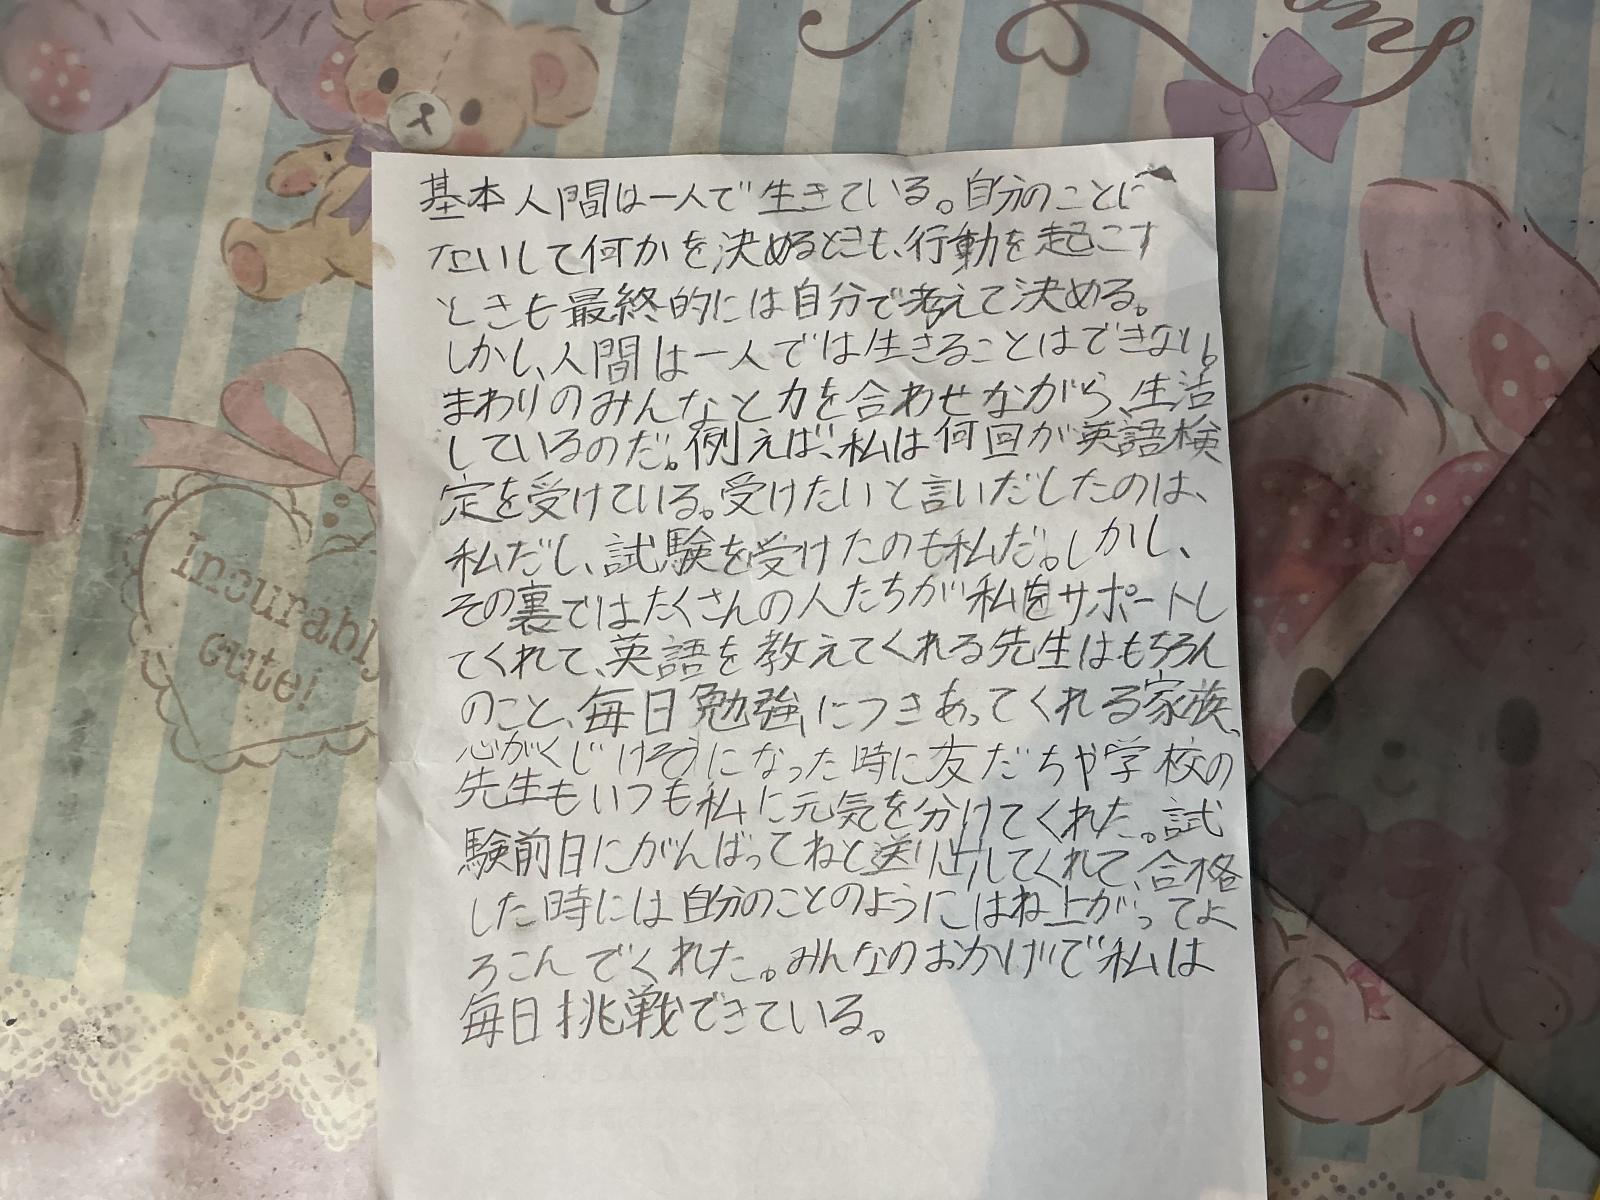 基本人間は一人で生きている。自分のことに
たいして何かを決めるときも、行動を起こす
ときも最終的には自分で考えて決める。
しかし、人間は一人では生きることはできない。
まわりのみんなと力を合わせながら、生活
しているのだ。例えば、私は何回か英語検
定を受けている。受けたいと言いだしたのは、
私だし、試験を受けたのも私だ。しかし、
その裏ではたくさんの人たちが私をサポートし
てくれて、英語を教えてくれる先生はもちろん
のこと、毎日勉強につきあってくれる家族、
心がくじけそうになった時に友だちや学校の
先生もいつも私に元気を分けてくれた。試
験前日にがんばってねと送り出してくれて、合格
した時には自分のことのようにはね上がってよ
ろこんでくれた。みんなのおかげで私は
毎日挑戦できている。
Incurably
cute!